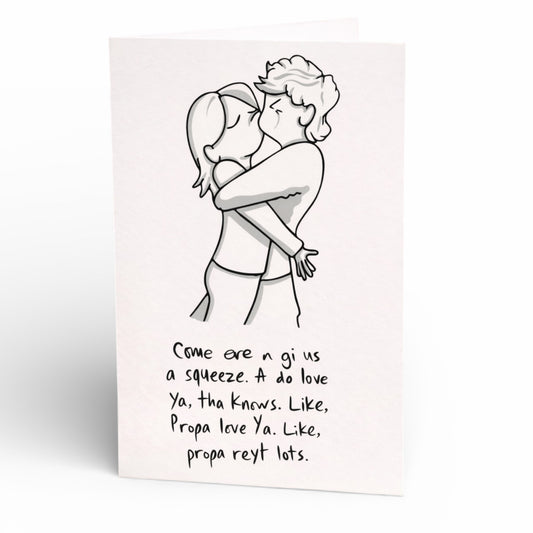 Come ere n gi us
a squeeze. A do love
Ya, tha Knows. Like,
Propa love Ya. Like,
propa reyt lots.